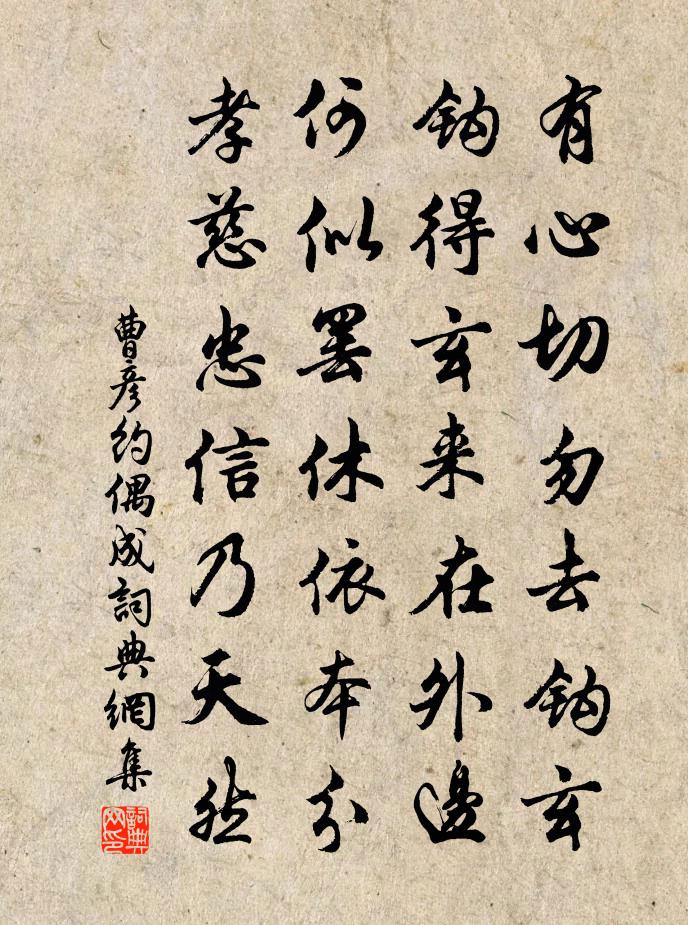 有心切勿去鈎玄
鈎得玄来在外邊
何似罢休依本分
孝慈忠信乃天然
曹彦約偶成詞典網集
詞典网印